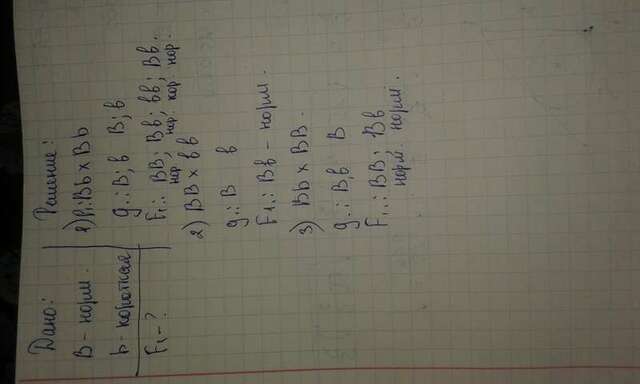 Дано:
B - норм.
b - короткая
F₁ - ?
Решение:
1) P: Bb x Bb
g.: B; b B; b
F₁.: BB; Bb; bb; Bb.
нор. нор. кор. нор.
2) BB x bb
g.: B b
F₁.: Bb - норм.
3) Bb x BB.
g.: B, b B
F₁.: BB; Bb
норм. норм.